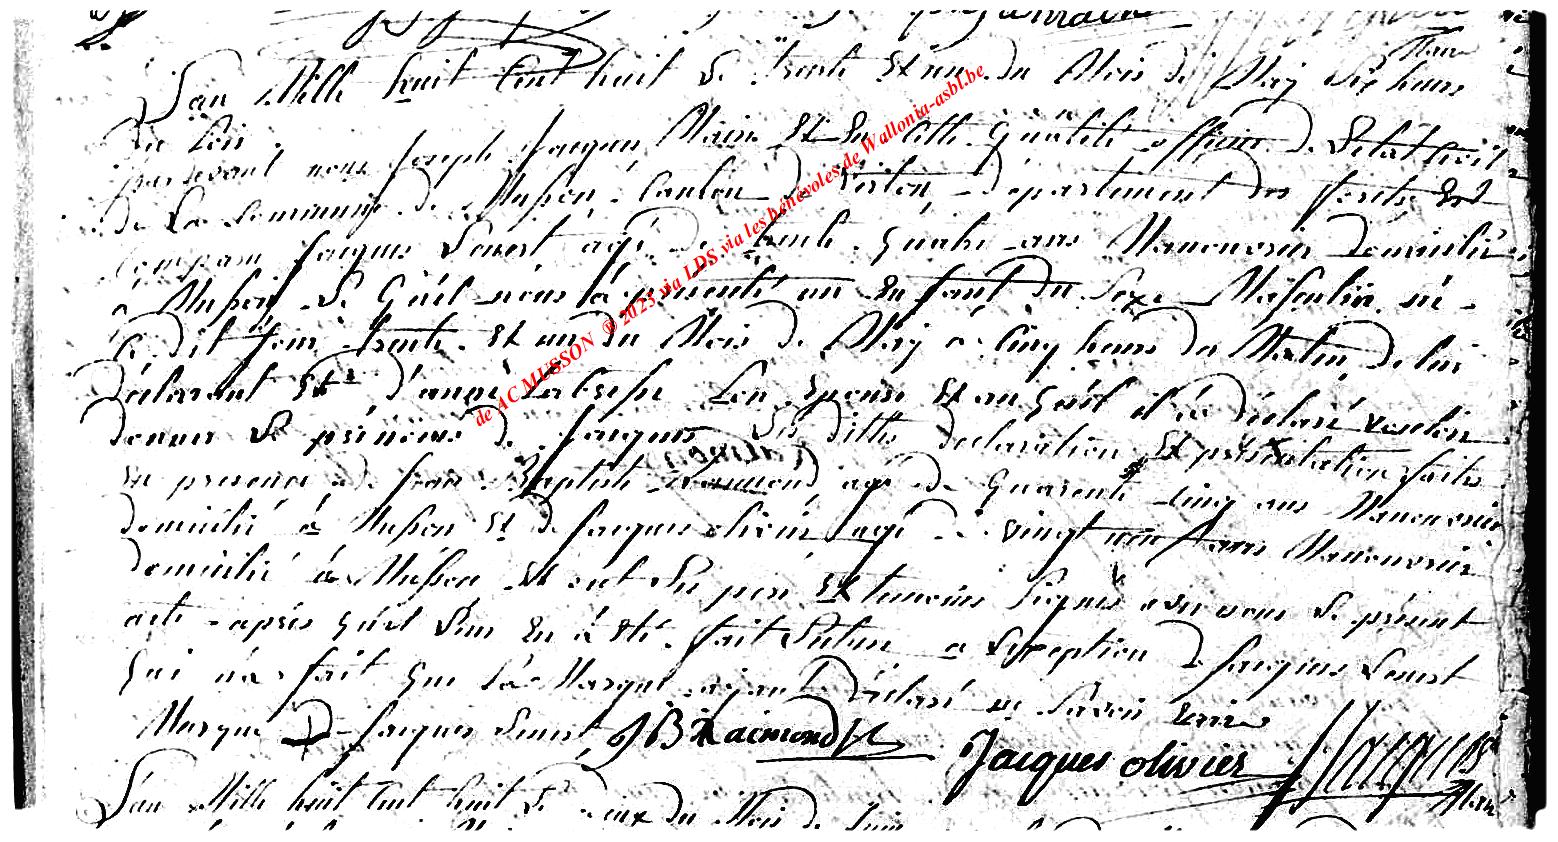 Maire
L'an Mille huit Cent huit Le trente Et un du Mois de May Six heures
du soir
pardevant nous joseph jacques Maire Et En Cette Quâlité officier de Létat Civil
de La Commune de Musson Canton de Virton, département des forêts Est
Comparu jacques Louest agé de trente Quatre ans Manouvrier domicilié
à Musson Le Quel nous à présenté un Enfant du Sexe Masculin né
Ce dit jour trente Et un du Mois de May à Cinq heures du Matin, de lui
déclarant Et d'anne Son Epouse Et au Quel il à déclaré vouloir
donner Le prénoms de jacques Les dittes déclaration Et présentation faites
En presence de jean Baptiste Raimond agé de Quarente Cinq ans Manouvrier
domicilié à Musson Et de jacques olivier agé de vingt ans Manouvrier
domicilié à Musson Et ont Les pere Et temoins Signés avec nous Le présent
acte après Qu'il Leur En à Eté fait Lecture a Exception de jacques Louest
Qui n'a fait Que Sa Marque ayant déclaré ne Savoir Ecrire
Marque D jacques Louest JB Raimond
Jacques olivier J Jacques
Maire
L'an Mille huit Cent huit Le deux du Mois de Juin
de ACMUSSON ® 2023 via LDS via les bénévoles de Wallonia-asbl.be